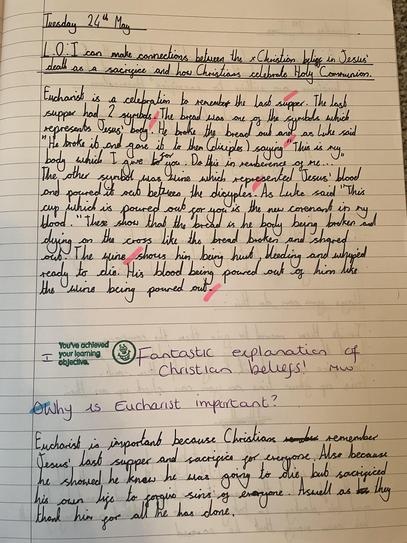 Tuesday 24th May
L.O: I can make connections between the Christian beliefs in Jesus'
death as a sacrifice and how Christians celebrate Holy Communion.
Eucharist is a celebration to remember the last supper. The last
supper had 2 symbols. The bread was one of the symbols which
represents Jesus' body. He broke the bread out and, as Luke said
"He broke it and gave it to them (disciples) saying "This is my
body which I gave to you. Do this in rembrence of me..."
The other symbol was wine which represented Jesus' blood
and poured it out between the disciples. As Luke said "This
cup which is poured out for you is the new covenant in my
blood." These show that the bread is he body being broken and
dying on the cross like the bread broken and shared
out. The wine shows him being hurt, bleeding and whipped
ready to die. His blood being poured out of him like
the wine being poured out.
I
You've achieved
your learning
objective.
Fantastic explanation of
Christian beliefs! MW
Why is Eucharist important?
Eucharist is important because Christians remember
Jesus' last supper and sacrifice for everyone. Also because
he showed he knew he was going to die but sacrificed
his own life to forgive sins of everyone. Aswell as they
thank him for all he has done.